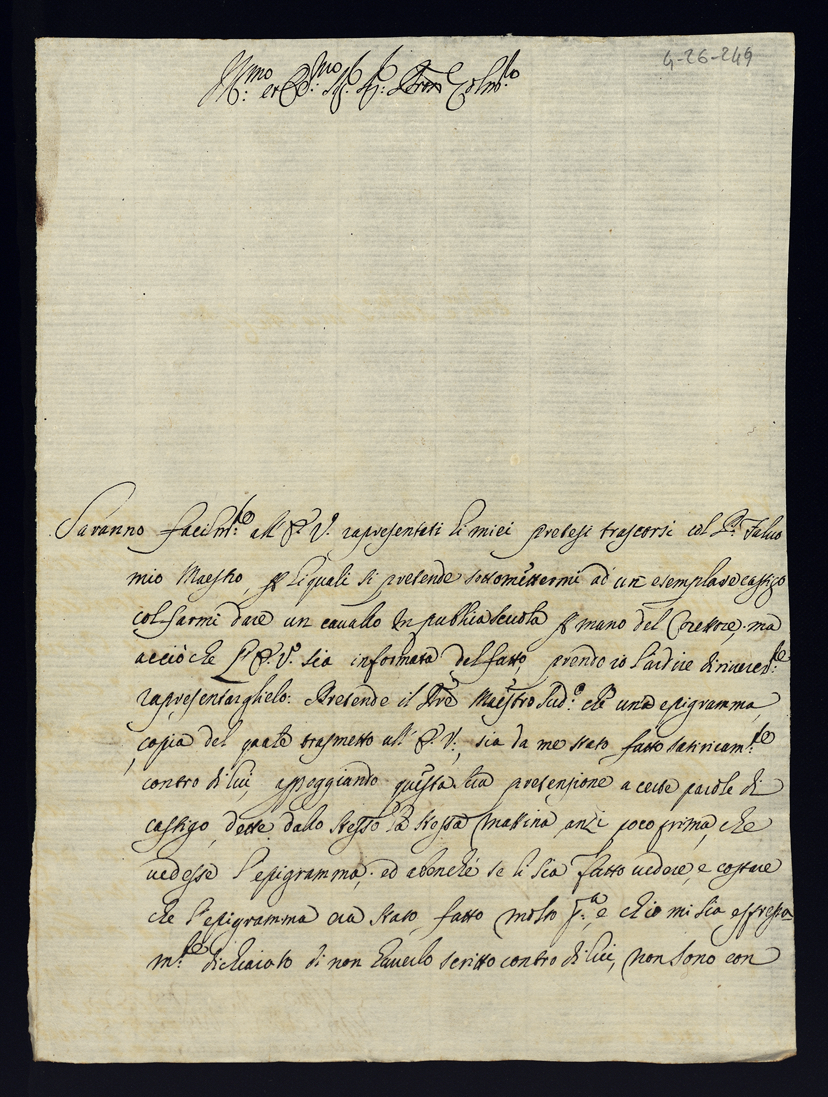 4-26-249
Ill.mo et R.mo Sig.r Sig.r Pron Col.mo
Saranno facilm.te all' E. V. rapresentati li miei pretesi trascorsi col P. Falco
mio Maestro, p li quali si pretende sottomettermi ad un esemplare castigo
col farmi dare un cavallo in publica scuola p mano del Corettore; ma
acciò che l'E. V. sia informata del fatto prendo io l'ardire di riveren.te
rapresentarghelo. Pretende il Pre Maestro Sud.o che una epigramma,
copia del quale trasmetto all' E. V., sia da me stato fatto satiricam.te
contro di lui, appoggiando questa sua pretensione a certe parole di
castigo, dette dallo stesso la stessa mattina, anzi poco prima, che
vedesse l'epigramma; ed abenché se li sia fatto vedere, e costare
che l'epigramma era stato fatto molto p.a, e ch'io mi sia espressa
m.te dichiarato di non haverlo scritto contro di lui, non sono con